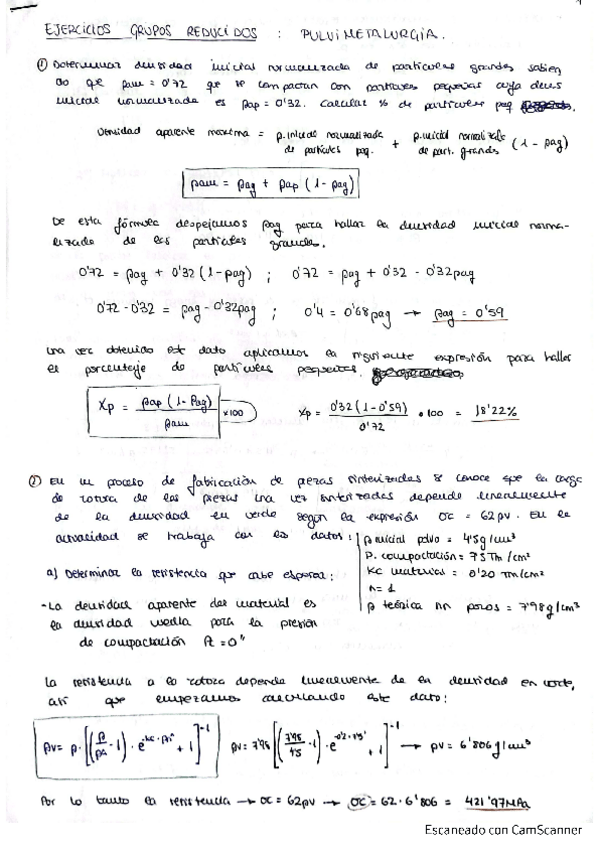 EJERCICIOS GRUPOS REDUCIDOS : PULVIMETALURGIA.
① Determinar densidad inicial normalizada de partículas grandes sabien
do que ρam = 0'72 que se compactan con partículas pequeñas cuya dens
inicial normalizada es ρap = 0'32. Calcular % de partículas peq
Densidad aparente maxima = ρ.inicial normalizada de particulas peq. + ρ.inicial normalizada de part. grandes (1 - ρag)
ρam = ρag + ρap (1 - ρag)
De esta fórmula despejamos ρag para hallar la densidad inicial norma-
lizada de las partículas grandes.
0'72 = ρag + 0'32 (1 - ρag) ; 0'72 = ρag + 0'32 - 0'32ρag
0'72 - 0'32 = ρag - 0'32ρag ; 0'4 = 0'68ρag → ρag = 0'59
Una vez obtenido este dato aplicamos la siguiente expresión para hallar
el porcentaje de partículas pequeñas.
Xp = ρap (1 - ρag) / ρam x100 Xp = 0'32 (1 - 0'59) / 0'72 · 100 = 18'22%
② En un proceso de fabricación de piezas sinterizadas se conoce que la carga
de rotura de las piezas una vez sinterizadas depende linealmente
de la densidad en verde según la expresión σc = 62ρv. En la
actualidad se trabaja con los datos :
ρ inicial polvo = 4'5g/cm³
P. compactación = 7'5 Tm/cm²
Kc material = 0'20 Tm/cm²
n = 1
ρ teórica sin poros = 7'98g/cm³
a) Determinar la resistencia que cabe esperar :
- La densidad aparente del material es
la densidad media para la presión
de compactación P = 0"
La resistencia a la rotura depende linealmente de la densidad en verde,
así que empezamos calculando este dato :
ρv = ρ · [(ρ/ρa - 1) · e^(-kc · Pⁿ) + 1]⁻¹ ρv = 7'98 [(7'98/4'5 - 1) · e^(-0'2 · 7'5¹) + 1]⁻¹ → ρv = 6'806g/cm³
Por lo tanto la resistencia → σc = 62ρv → σc = 62 · 6'806 = 421'97MPa
Escaneado con CamScanner